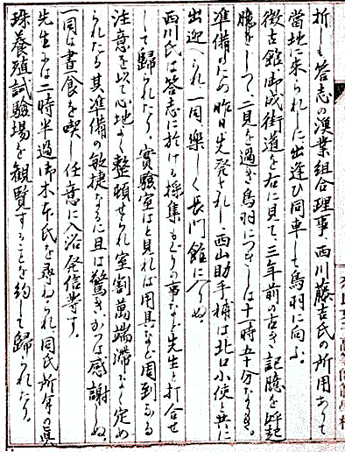 折しも答志の漁業組合理事西川藤吉氏の所用ありて
当地に来られしに出逢ひ同車して鳥羽に向ふ。
徴古館御成街道を右に見て三年前の古き記臆を呼起
しつ二見を過ぎ鳥羽につきしは十一時五十分なりき。
準備のため昨日先発されし西山助手補は北口小使と共に
出迎へられ一同楽しく長門館に入りぬ。
西川氏は答志に於ける採集もどりの事など先生と打合せ
して帰られたり。実験室はと見れば用具など周到なる
注意を以て心地よく整頓せられ室割万端滞なく定め
られたる其準備の敏捷なるに且は驚きかつは感謝しぬ。
一同は昼食を喫し任意に入浴発信等す。
先生には二時半過御木本氏を尋ねられ同氏所有の真
珠養殖試験場を観覧することを約して帰られたり。